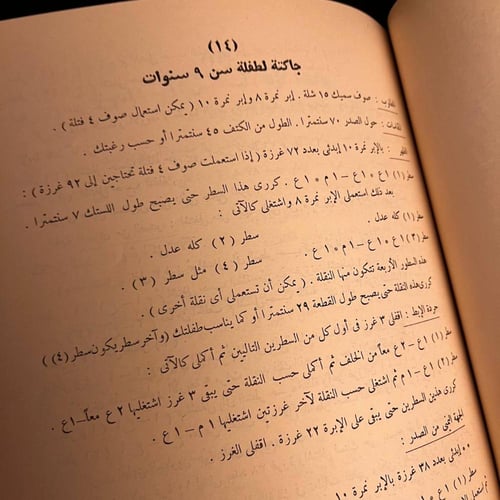 (١٤)
جاكتة لطفلة سن ٩ سنوات
المطلوب : صوف سميك ١٥ شلة . إبر نمرة ٨ وإبر نمرة ١٠ ( يمكن استعمال صوف ٤ فتلة ) .
المقاسات : حول الصدر ٧٠ سنتمترا . الطول من الكتف ٤٥ سنتمترا أو حسب رغبتك .
الظهر : بالإبر نمرة ١٠ إبدئى بعدد ٧٢ غرزة ( إذا استعملت صوف ٤ فتلة تحتاجين إلى ٩٢ غرزة ) :
سطر (١) ١ع * ١ع – ١م * ١ع . كررى هذا السطر حتى يصبح طول اللستك ٧ سنتمترا .
بعد ذلك استعملى الإبر نمرة ٨ واشتغلى كالآتى :
سطر (١) كله عدل . سطر (٢) كله عدل .
سطر (٣) ١ع * ١ع – ١م * ١ع . سطر (٤) مثل سطر (٣) .
هذه السطور الأربعة تتكون منها النقلة . ( يمكن أن تستعملى أى نقلة أخرى ) .
كررى هذه النقلة حتى يصبح طول القطعة ٢٩ سنتمترا أو كما يناسب طفلتك (وآخر سطر يكون سطر (٤))
حردة الإبط : اقفلى ٣ غرز فى أول كل من السطرين التاليين ثم أكملى كالآتى :
سطر (١) ١ع – ٢ع معاً من الخلف ثم أكملى حسب النقلة حتى يبقى ٣ غرز اشتغليها ٢ع معاً – ١ع .
سطر (٢) ١ع – ١م ثم اشتغلى حسب النقلة لآخر غرزتين اشتغليها ١م – ١ع .
كررى هذين السطرين حتى يبقى على الإبرة ٢٢ غرزة . اقفلى الغرز .
الجهة اليمنى من الصدر :
إبدئى بعدد ٣٨ غرزة بالإبر نمرة ١٠
سطر (١)